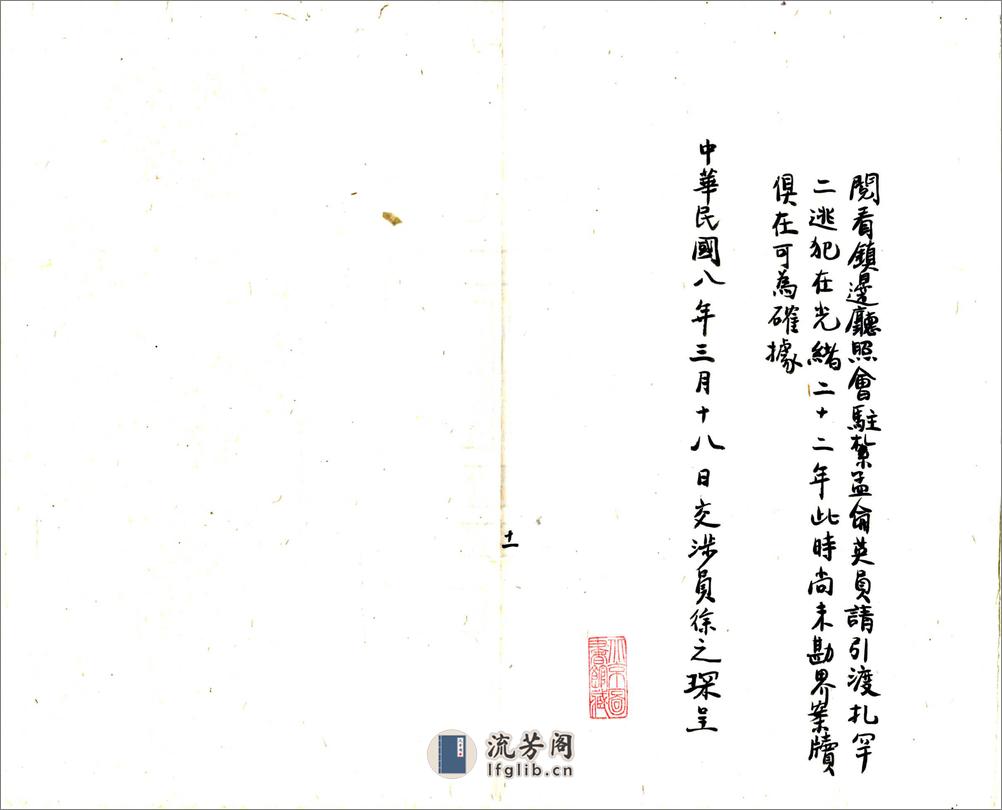 閱看鎮邊廳照會駐紮孟倫英員請引渡扎罕
二逃犯在光緒二十二年此時尚未勘界案牘
俱在可為確據
中華民國八年三月十八日交涉員徐之琛呈
十一
北京圖
書館藏
流芳阁
lfglib.cn